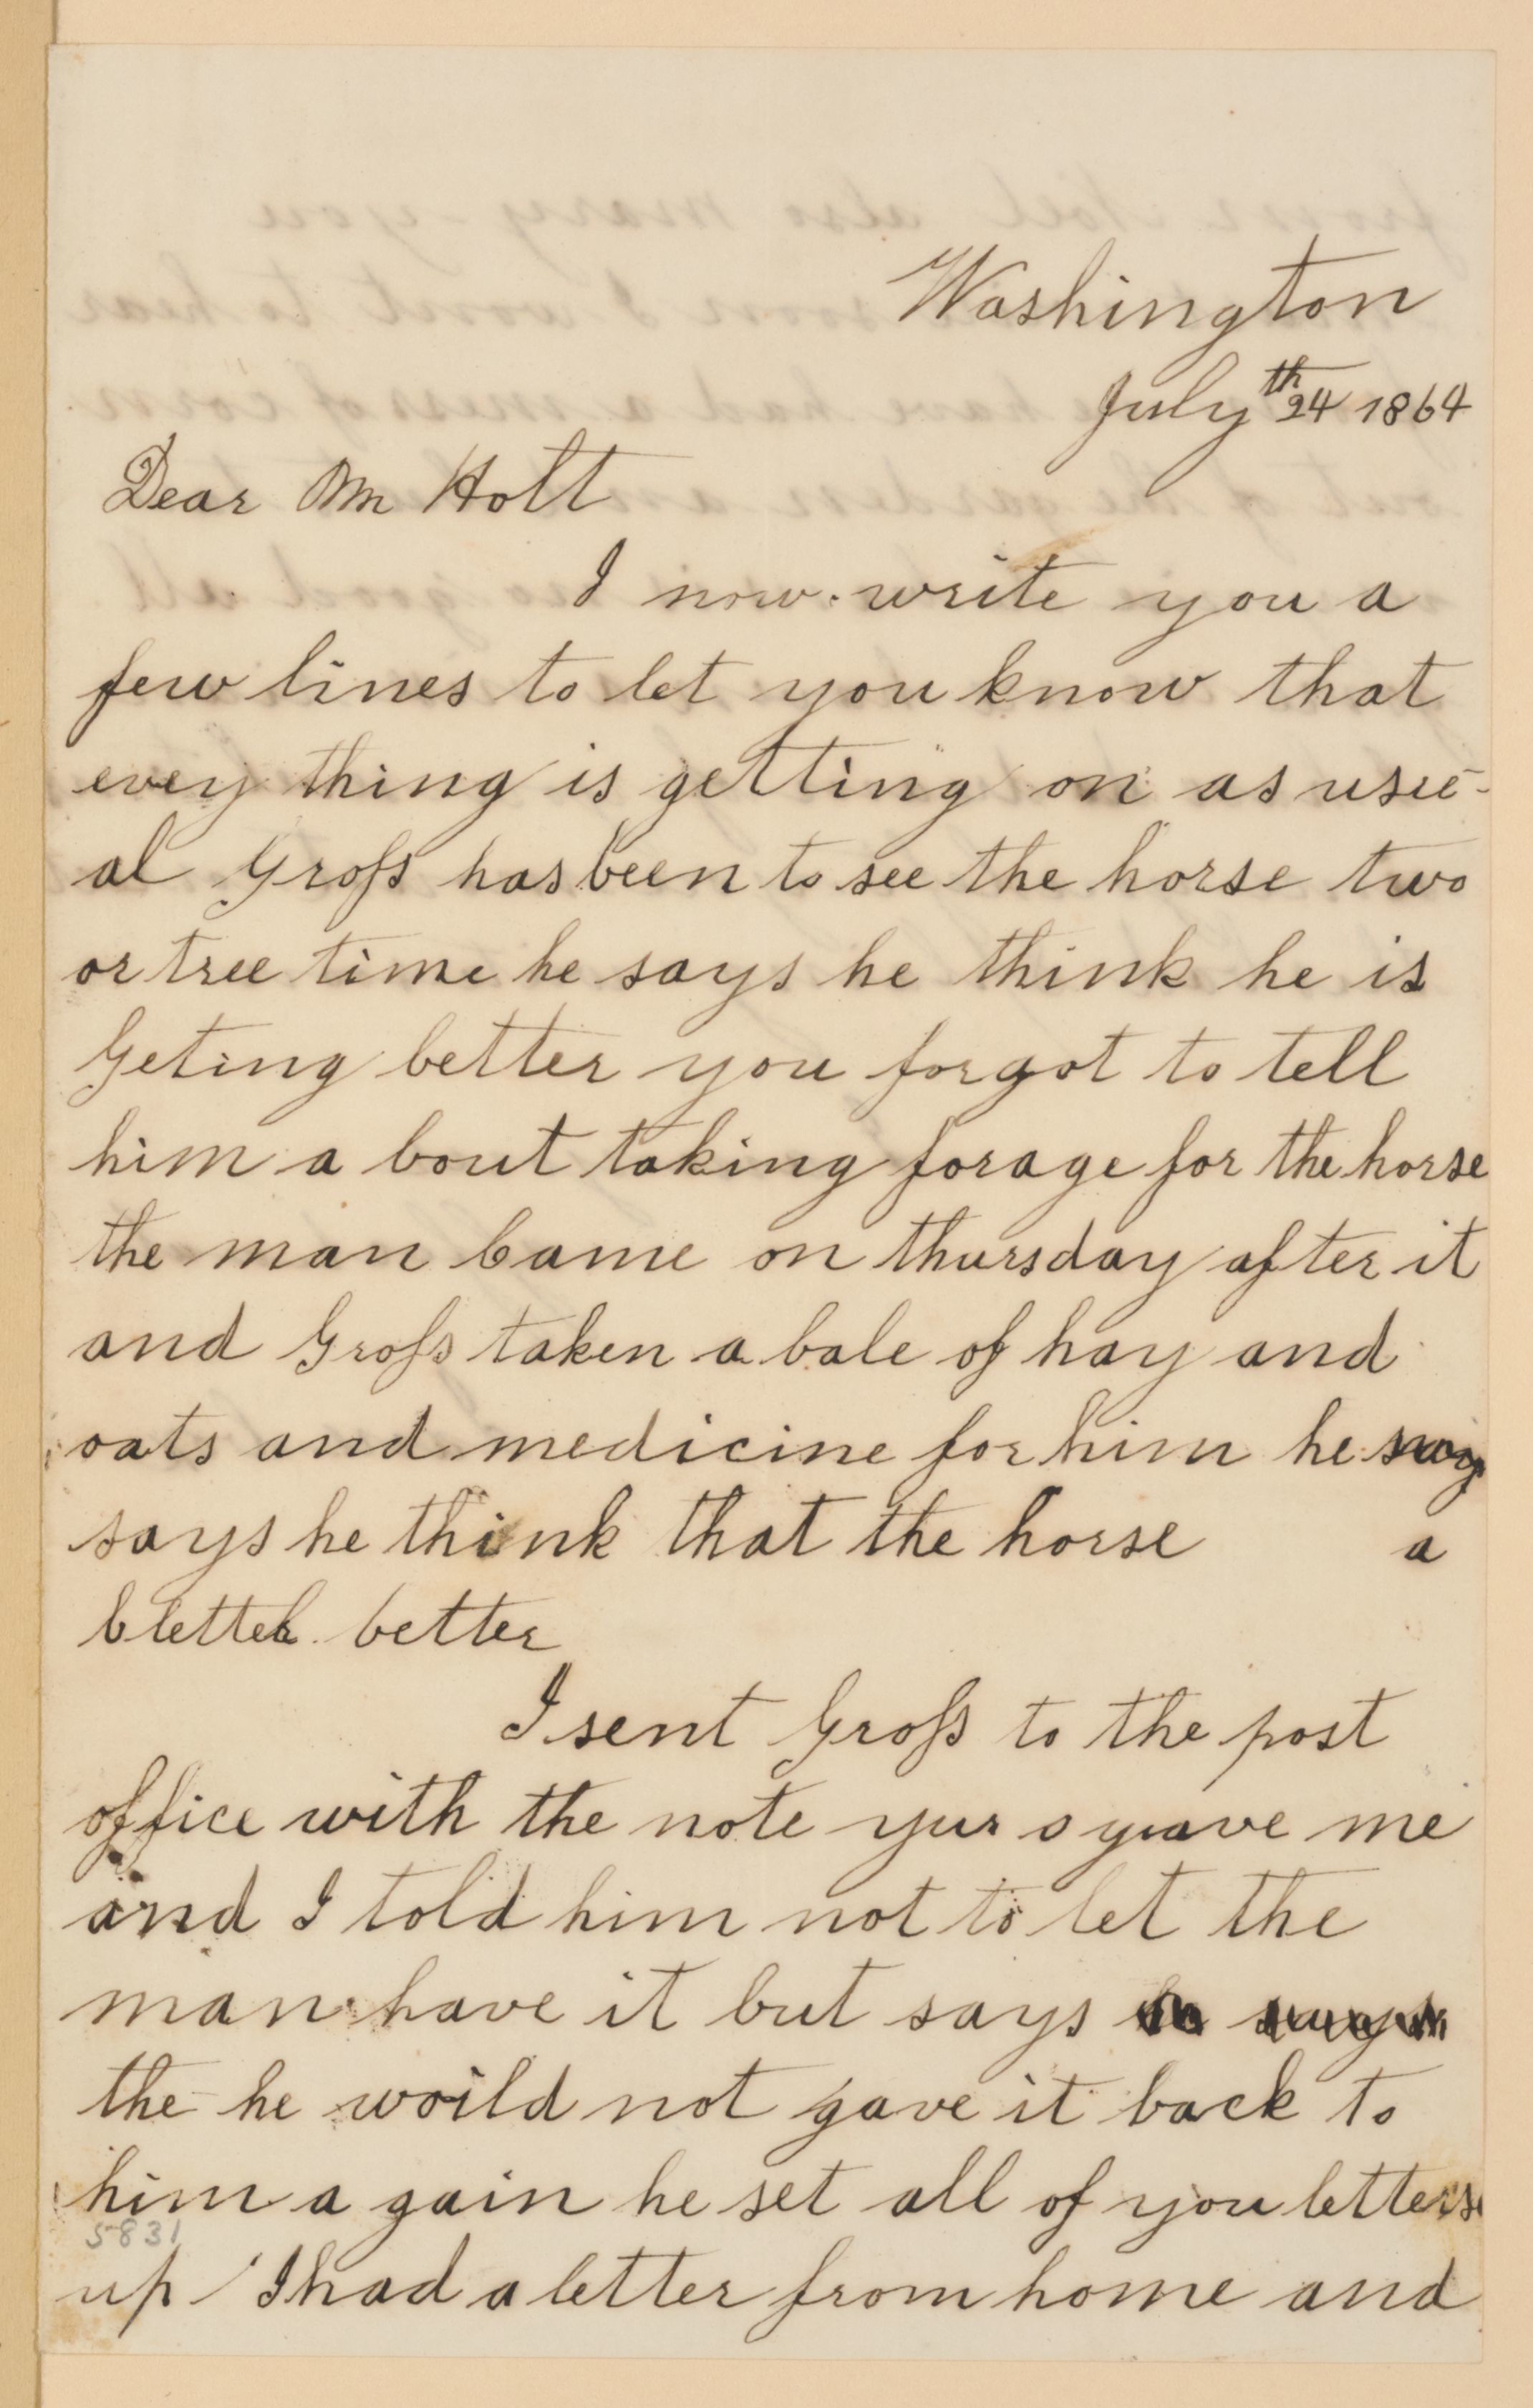 Washington
July 24th 1864
Dear Mr Holt
I now write you a
few lines to let you know that
every thing is getting on as usu-
al Gross has been to see the horse two
or tree time he says he think he is
Geting better you forgot to tell
him a bout taking forage for the horse
the man came on thursday after it
and Gross taken a bale of hay and
oats and medicine for him he
says he think that the horse a
better
I sent Gross to the post
office with the note me
and I told him not to let the
man have it but says
the he woild not gave it back to
him a gain he set all of you letters
5831
up I had a letter from home and